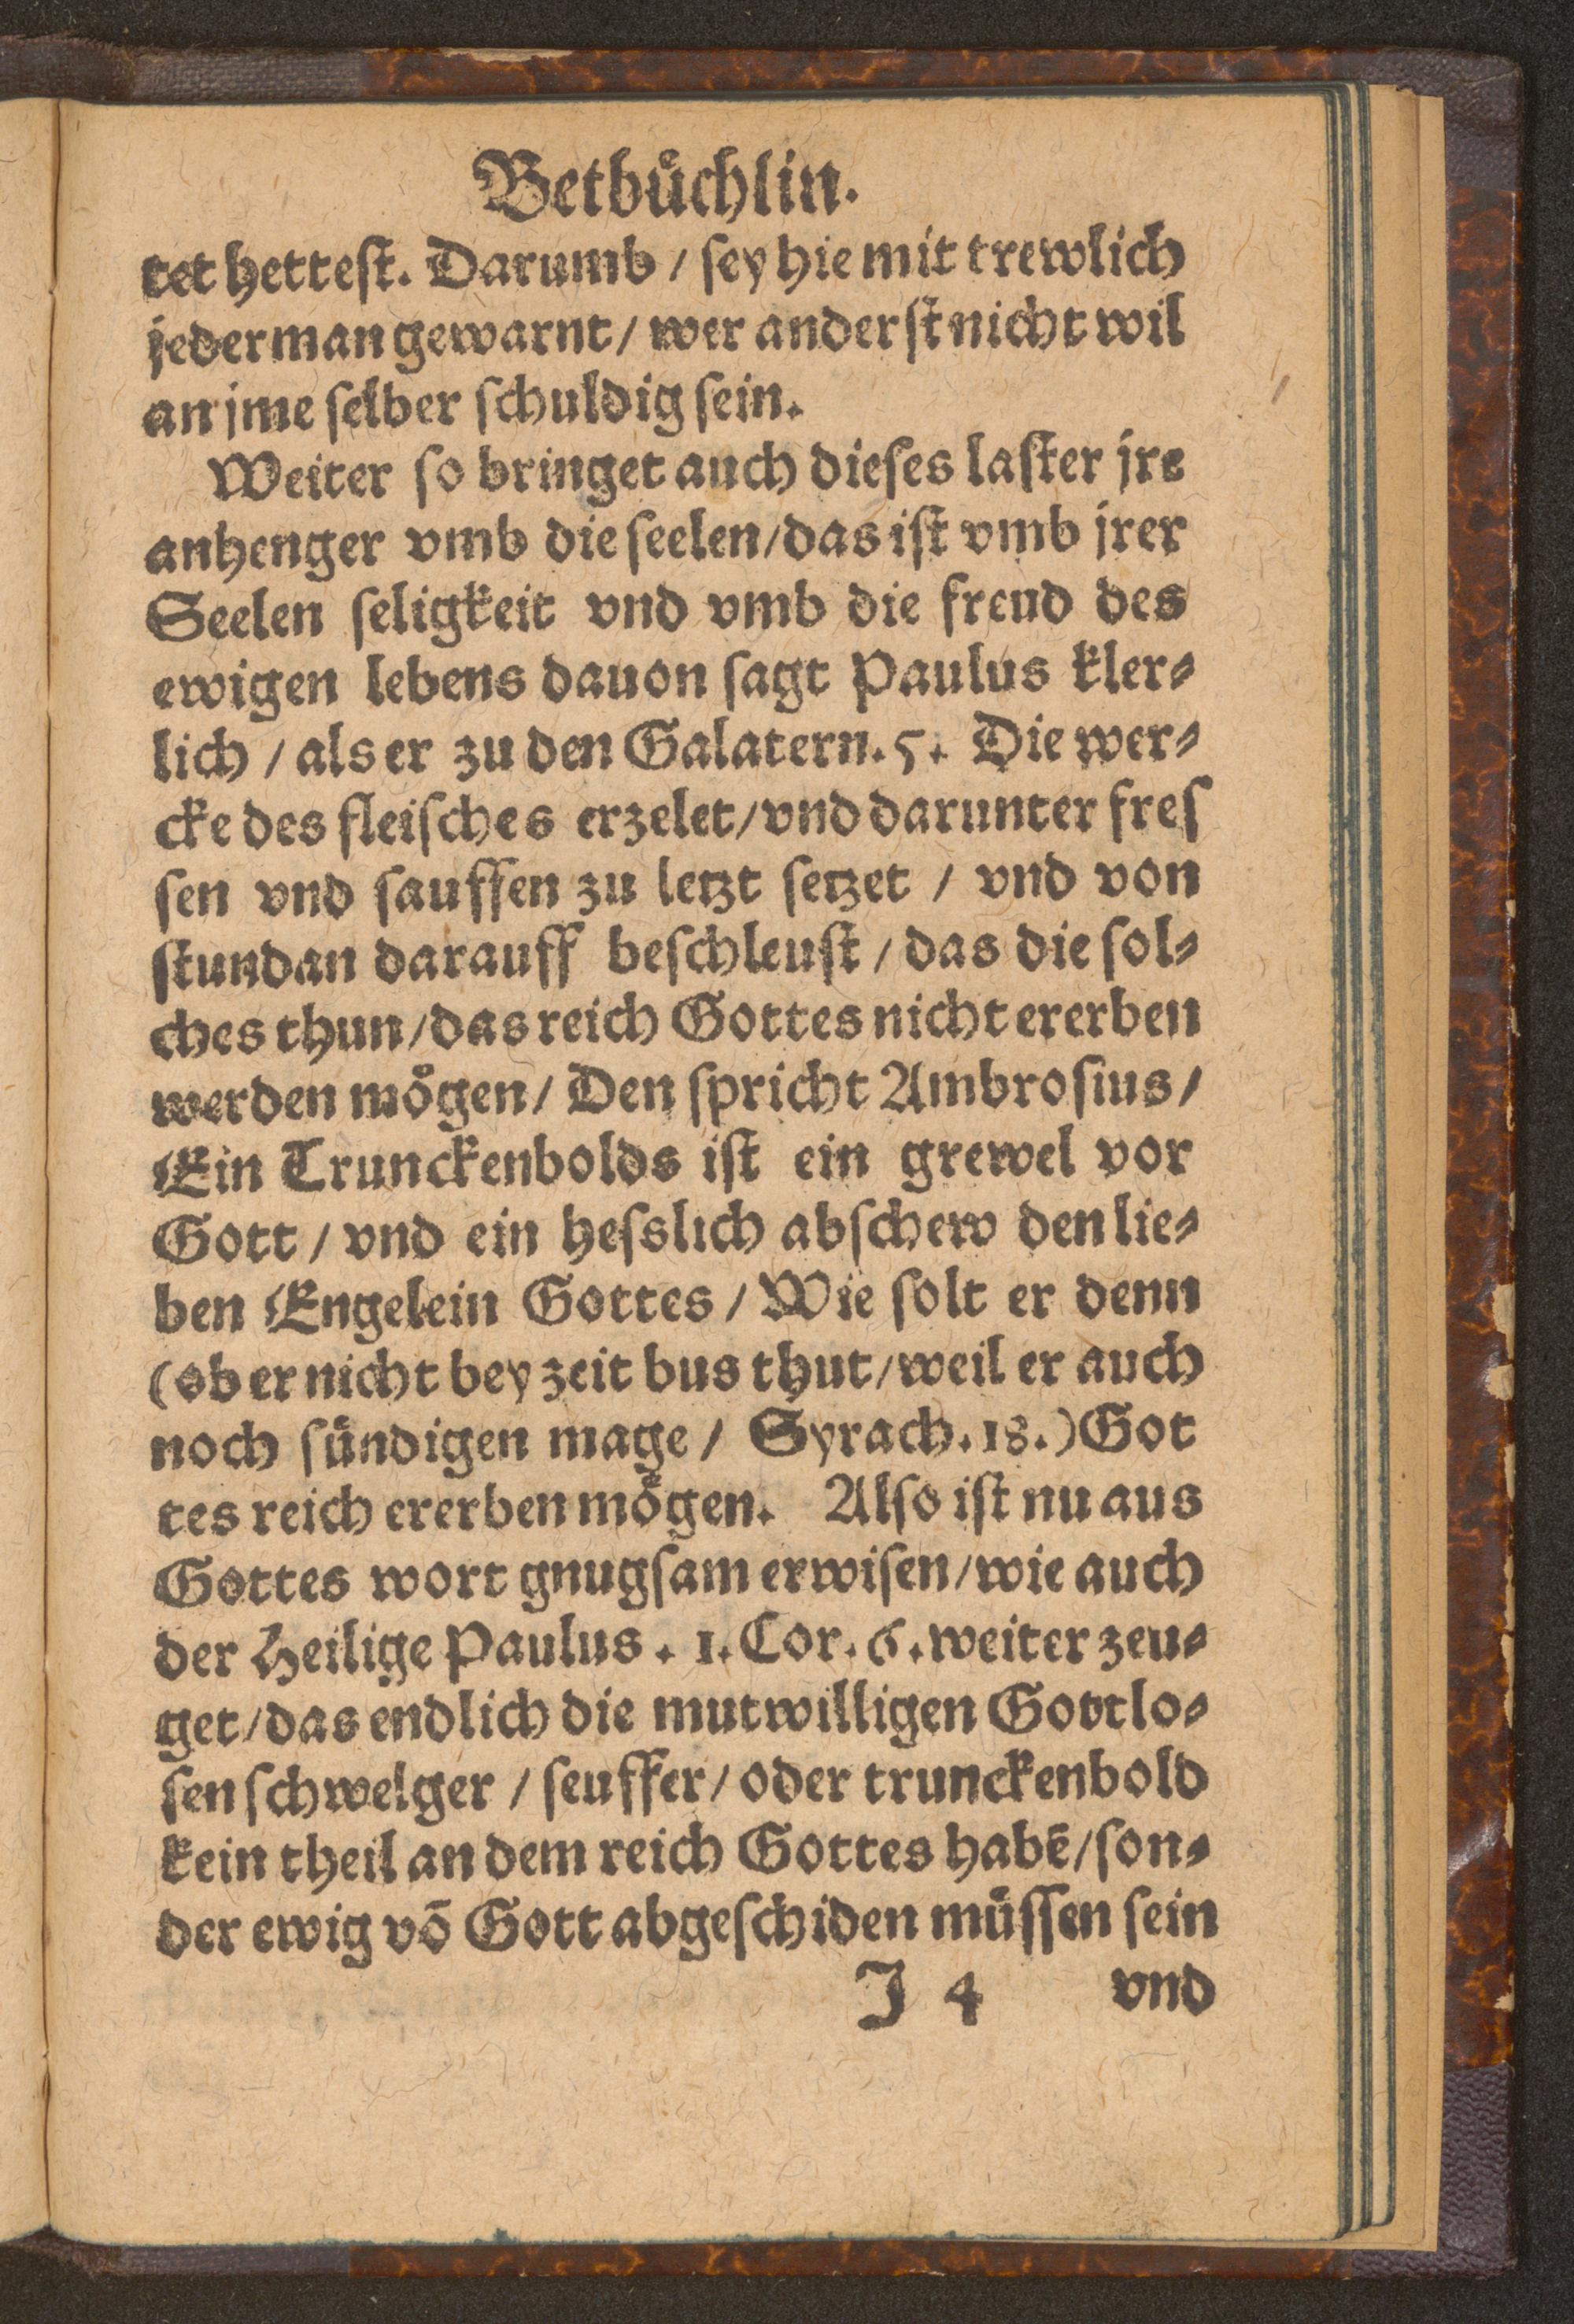 Betbuͤchlin.
tet hetteſt. Darumb / ſey hie mit trewlich
jederman gewarnt / wer anderſt nicht wil
an jme ſelber ſchuldig ſein.
Weiter ſo bringet auch dieſes laſter jre
anhenger vmb die ſeelen / das iſt vmb jrer
Seelen ſeligkeit vnd vmb die freud des
ewigen lebens dauon ſagt Paulus kler⸗
lich / als er zu den Galatern. 5. Die wer⸗
cke des fleiſches erzelet / vnd darunter freſ
ſen vnd ſauffen zu letzt ſetzet / vnd von
ſtundan darauff beſchleuſt / das die ſol⸗
ches thun / das reich Gottes nicht ererben
werden moͤgen / Den ſpricht Ambroſius /
Ein Trunckenbolds iſt ein grewel vor
Gott / vnd ein heſslich abſchew den lie⸗
ben Engelein Gottes / Wie ſolt er denn
(ob er nicht bey zeit bus thut / weil er auch
noch ſuͤndigen mage / Syrach. 18.) Got
tes reich ererben moͤgen. Alſo iſt nu aus
Gottes wort gnugſam erwiſen / wie auch
der Heilige Paulus. 1. Cor. 6. weiter zeu⸗
get / das endlich die mutwilligen Gottlo⸗
ſen ſchwelger / ſeuffer / oder trunckenbold
kein theil an dem reich Gottes habē / ſon⸗
der ewig võ Gott abgeſchiden muͤſſen ſein
J 4 vnd